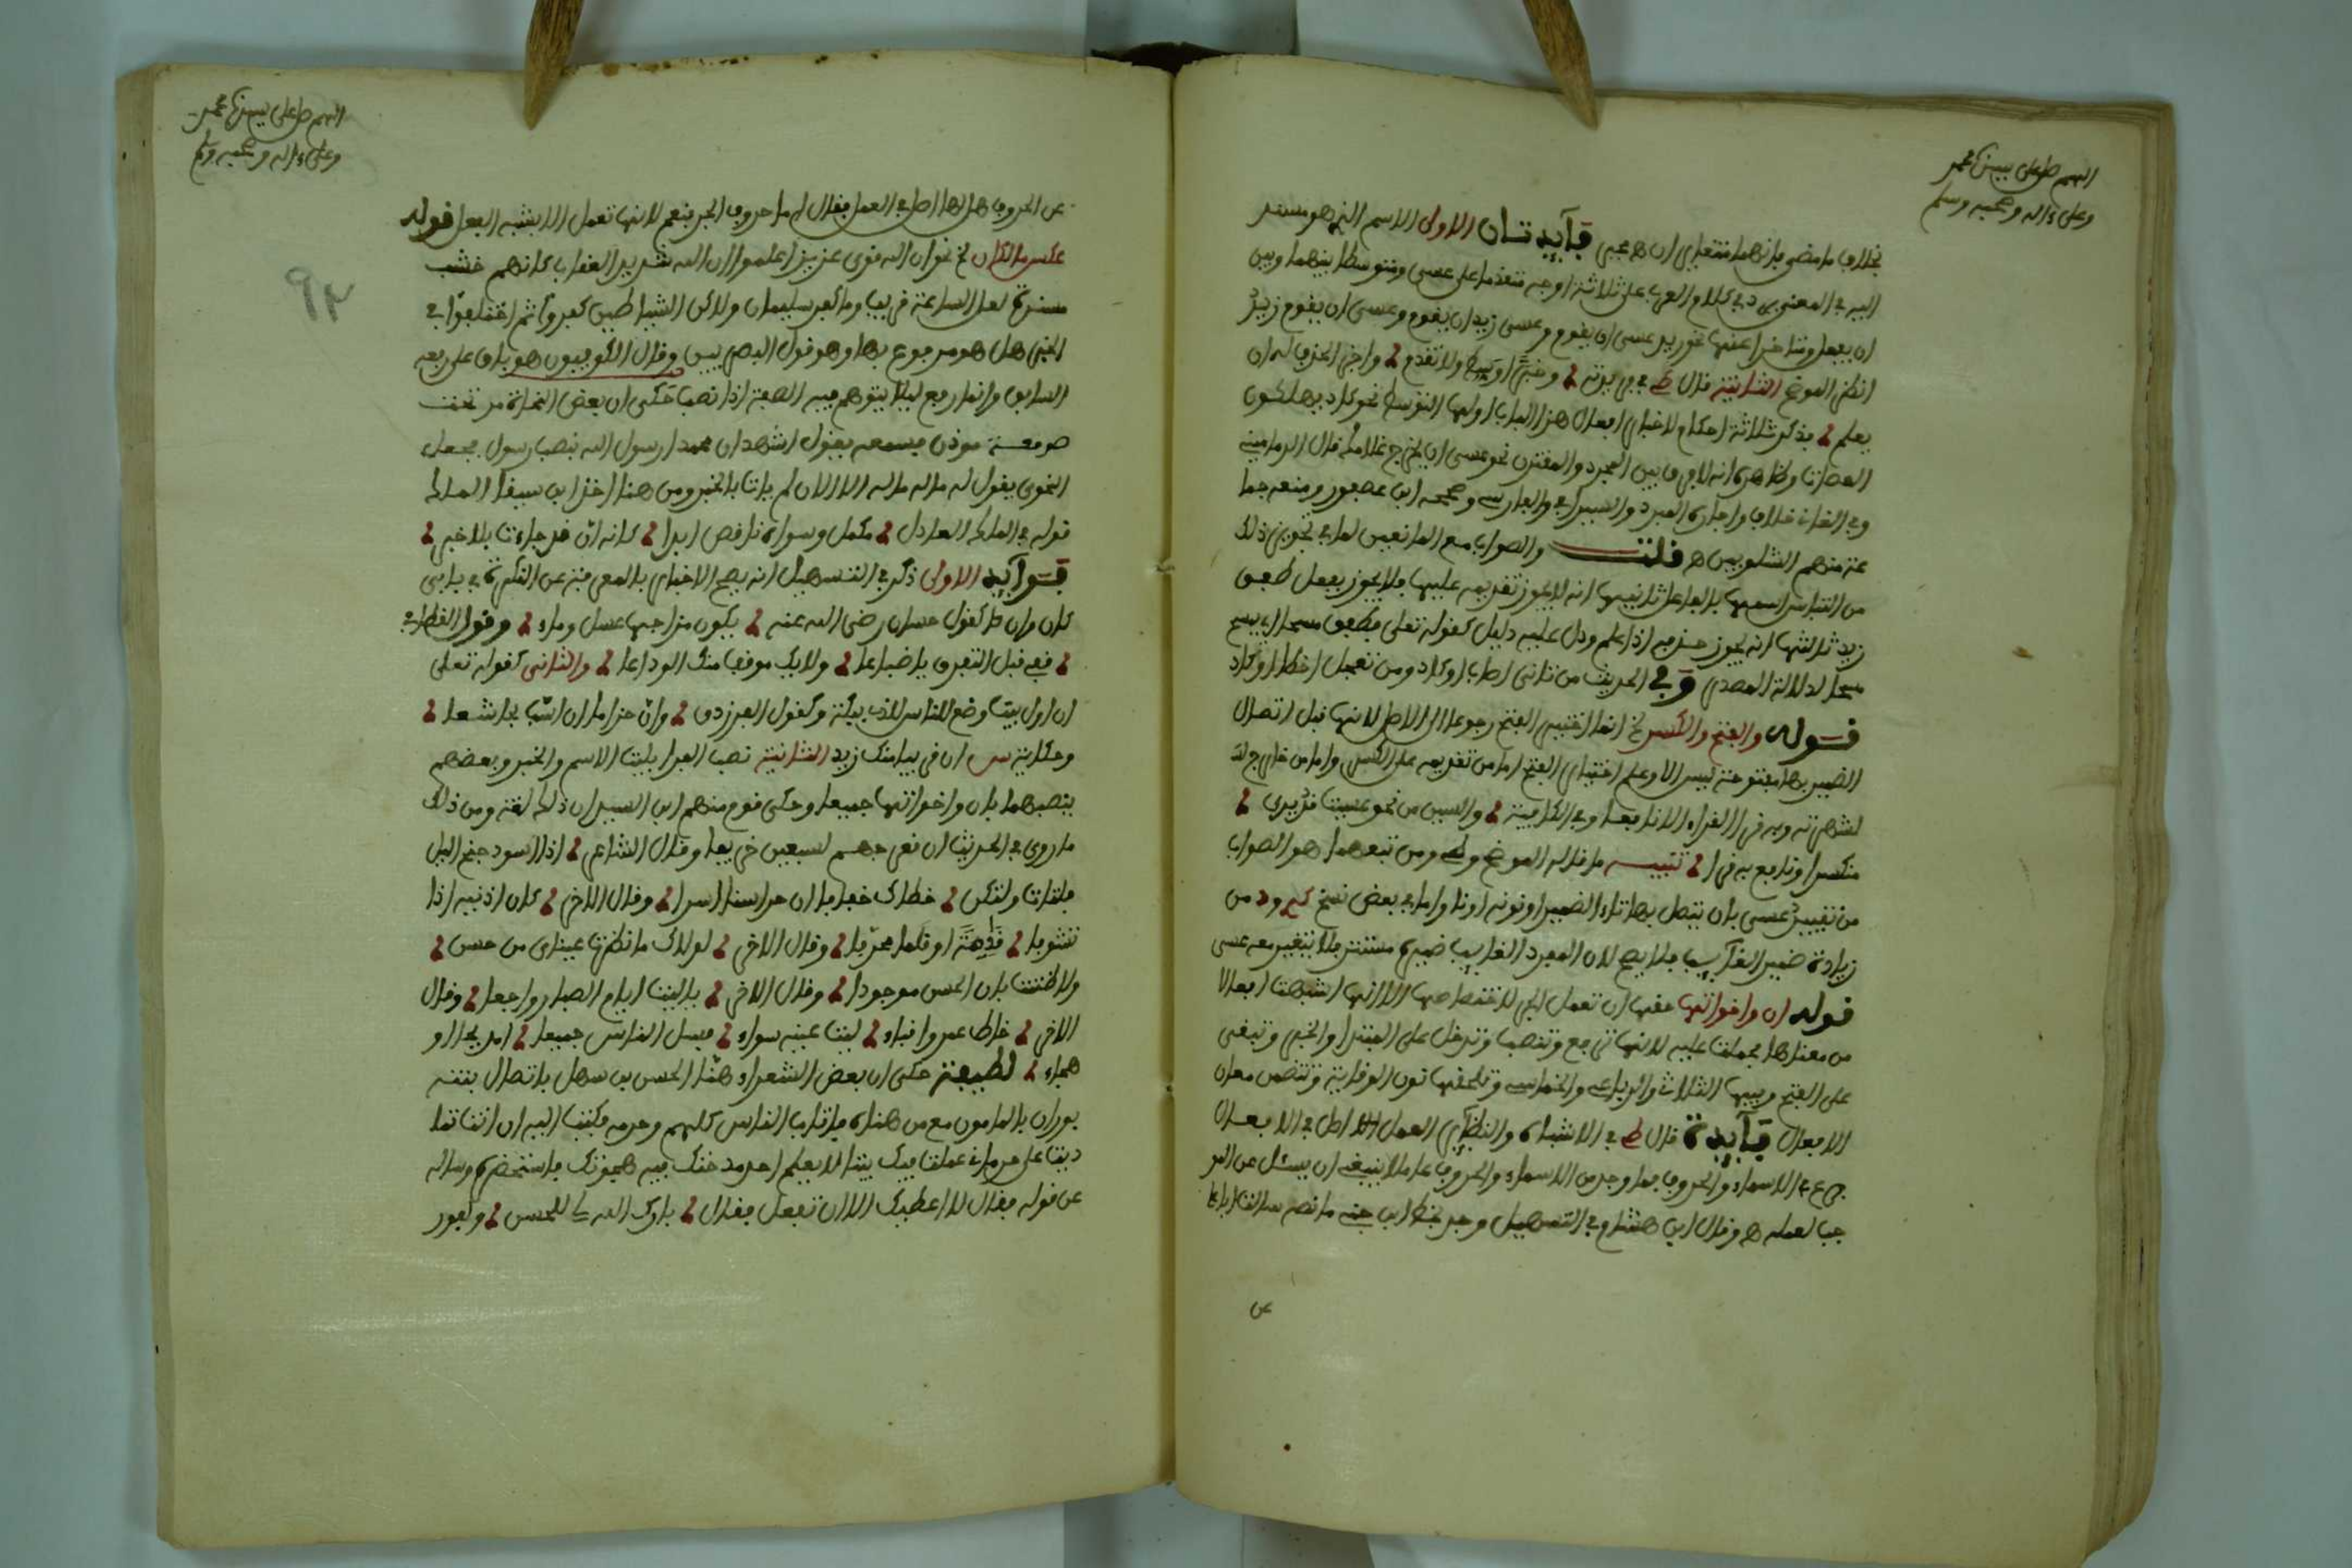 اللهم صل على سيدنا محمد
وعلى ءاله وصحبه وسلم
بخلاف ما مضى فإنهما متعديان اه عجى فآيدتان الاولى الاسم الذي هو مسند
اليه في المعنى يرد في كلام العرب على ثلاثة اوجه متقدما على عسى ومتوسطا بينهما وبين
ان يفعل ومتاخرا عنها نحو زيد عسى ان يقوم وعسى زيد ان يقوم وعسى ان يقوم زيد
انظر الموضح الثانية قال ط في
يعلم فذكر ثلاثة احكام لاخبار افعال هذا الباب اولها التوسط نحو كاد يهلكون
العصاة وظاهره انه لا فرق بين المجرد والمقترن نحو عسى ان يخرج غلامك قال الدمامينى
وفي الثانى خلاف واجازه المبرد والسيرافي والفارسى وصححه ابن عصفور ومنعه جما
عة منهم الشلوبين اه قلت والصواب مع المانعين لما في تجويز ذلك
من التباس اسمها بالفاعل ثانيها انه لا يجوز تقديمه عليها فلا يجوز يفعل طفق
زيد ثالثها انه يجوز حذفه اذا علم ودل عليه دليل كقوله تعلى فطفق مسحا اي يمسح
مسحا لدلالة المصدر وفي الحديث من تانى اصاب او كاد ومن تعجل اخطا او كاد
قوله والفتح والكسر الخ انما اختير الفتح رجوعا الى الاصل لانها قبل اتصال
الضمير بها مفتوحة ليس الا وعلم اختيار الفتح اما من تقديمه على الكسر واما من خارج لك
لشهرته وبه قرا القراء الا نافعا وفي الكافية والسين من نحو عسيت قد يرى
منكسرا ونافع به قرا تنبيه ما قاله الموضح و ومن تبعهما هو الصواب
من تقييد عسى بان يتصل بها تاء الضمير او نونه او نا واما في بعض نسخ من
زيادة ضمير الغآيب فلا يصح لان المفرد الغايب ضميره مستتر فلا يتغير معه عسى
قوله ان واخواتها حقها ان تعمل الجر لاختصاصها الا انها اشبهت افعالا
من معناها فحملت عليه لانها ترفع وتنصب وتدخل على المبتدا والخبر وتبنى
على الفتح وفيها الثلاث والرباعى والخماسى وتلحقها نون الوقاية وتتضمن معان
الافعال فآيدة قال ط في الاشباه والنظآير العمل اصل في الافعال
فرع في الاسماء والحروف فما وجد من الاسماء والحروف عاملا ينبغى ان يسئل عن المو
جب لعمله اه وقال ابن هشام في التسهيل وجد بخط ابن جنى ما نصه سالت ابا على
عن
اللهم صل على سيدنا محمد
وعلى ءاله وصحبه وسلم
٩٢
عن الحروف هل لها اصل في العمل فقال اما حروف الجر فنعم لانها تعمل الا بشبه الفعل قوله
عكس ما لكان الخ نحو ان الله قوى عزيز اعلموا ان الله شديد العقاب كانهم خشب
مسندة لعل الساعة قريب وما كفر سليمان ولاكن الشياطين كفروا ثم اختلفوا في
الخبر هل هو مرفوع بها وهو قول البصريين وقال الكوفيون هو باق على رفعه
السابق وانما رفع ليلا يتوهم فيه الصفة اذا نصب حكى ان بعض النحاة مر تحت
صومعة موذن فسمعه يقول اشهد ان محمدا رسول الله بنصب رسول فجعل
النحوى يقول له ما له ما له الا الان لم يات بالخبر ومن هنا اخذ ابن سيفا الملك
قوله في الملك العادل مكمل وسواه ناقص ابدا كانه ان قد جاءت بلا خبر
فوآيد الاولى ذكر في التسهيل انه يصح الاخبار بالمعرفة عن النكرة في بابى
كان وان كقول حسان رضى الله عنه يكون مزاجها عسل وماء وقول القطامي
قفى قبل التفرق يا ضباعا ولا يك موقف منك الوداعا والثانى كقوله تعلى
ان اول بيت وضع للناس للذى ببكة وكقول الفرزدق وان حراما ان اسب مجاشعا
وحكاية س ان قريبا منك زيد الثانية نصب الفرا بليت الاسم والخبر وبعضهم
ينصبهما بان واخواتها جميعا وحكى قوم منهم ابن السيد ان ذلك لغة ومن ذلك
ما روى في الحديث ان قعر جهنم لسبعين خريفا وقال الشاعر اذا اسود جنح اليل
فلتات ولتكن خطاك خفافا ان حراسنا اسدا وقال الاخر كان اذنيه اذا
تشوفا قادمة او قلما محرفا وقال الاخر لولاك ما نظرت عيناى من حسن
ولا ظننت بان الحسن موجودا وقال الاخر ياليت ايام الصبا رواجعا وقال
الاخر خاط عمرو اقباء ليت عينيه سواء فسل الناس جميعا امديحا او
هجاء لطيفة حكى ان بعض الشعراء هنا الحسن بن سهل باتصال بنته
بوران بالمامون مع من هناه فاثاب الناس كلهم وحرمه فكتب اليه ان انت تما
ديت على حرمانى عملت فيك بيتا لا يعلم احد مدحتك فيه ام هجوتك فاستحضره وساله
عن قوله فقال لا اعطيك الا ان تفعل فقال بارك الله للحسن ولبور